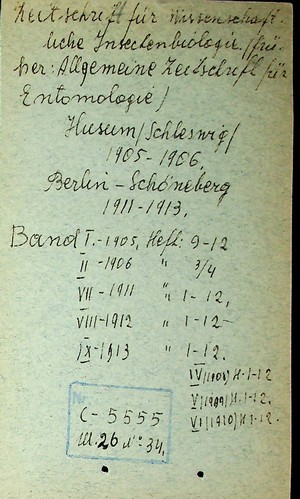 Zeitschrift für wissenschaft-
liche Insectenbiologie. (frü-
her: Allgemeine Zeitschrift für
Entomologie)
Husum/Schleswig/
1905-1906,
Berlin-Schöneberg
1911-1913,
Band I.-1905, Heft: 9-12
II -1906 " 3/4
VII - 1911 " 1-12,
VIII-1912 " 1-12
IX-1913 " 1-12.
IV(1908) H. 1-12
V(1909) H. 1-12.
VI(1910) H. 1-12.
Nr.
C-5555
Ш. 26 п. 34.